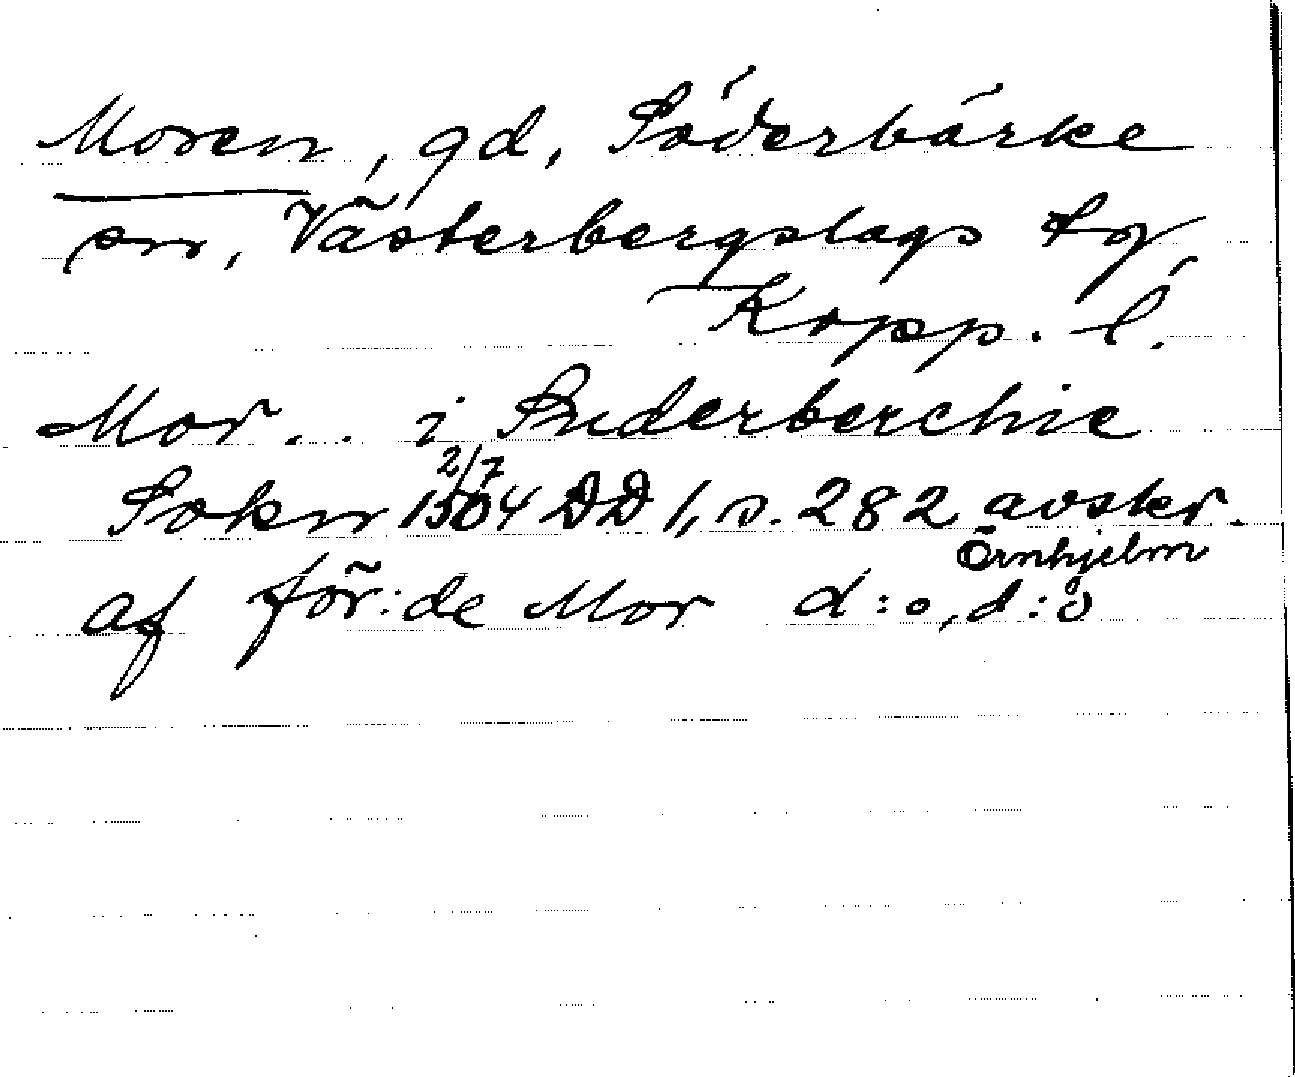 Moren, gd, Söderbärke
sn, Västerbergslags tg
Kopp. l.
Mor... i Suderberchie
Sokn 2/7 1504 DD 1, s. 282 avskr.
Örnhjelm
af för:de Mor d:o, d:o